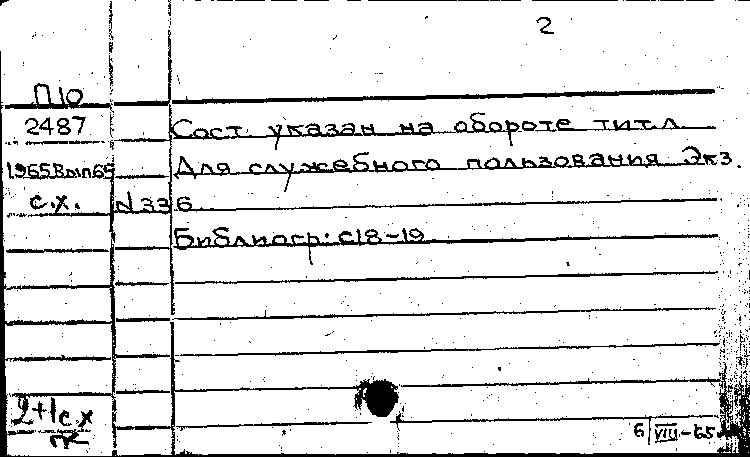 2
П10
2487 Сост. указан на обороте тит.л.
1965.Вып65 Для служебного пользования. Экз.
с.х. №336
Библиогр: с18-19
2+1с х
пк
6/VIII-65